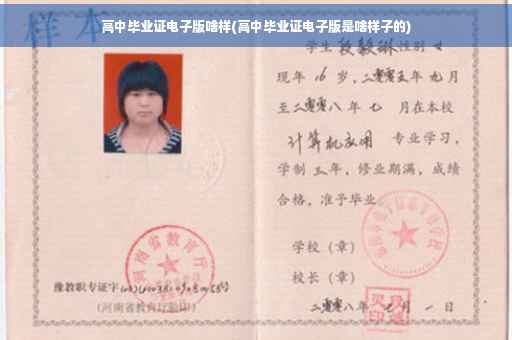 高中毕业证电子版啥样(高中毕业证电子版是啥样子的)
样本
学生段毅琳性别女
现年16岁,二零零五年九月
至二零零八年七月在本校
计算机应用 专业学习,
学制三年,修业期满,成绩
合格,准予毕业
学校(章)
校长(章)
二零零八年七月一日
河南省教育厅
豫教职专证字
(河南省教育厅验印)